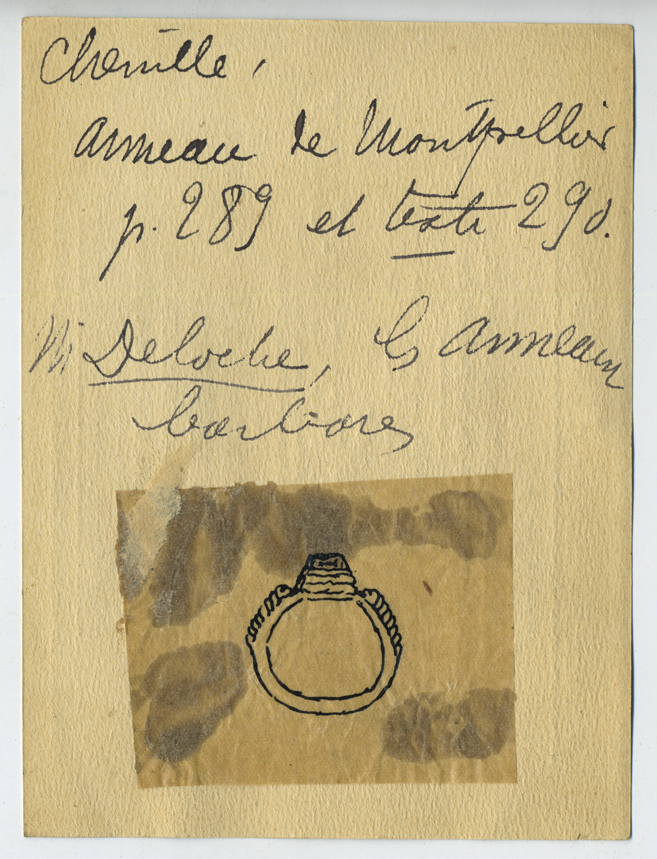 Chenille,
anneau de Montpellier
p. 289 et texte 290.
M Deloche, les anneaux
barbares